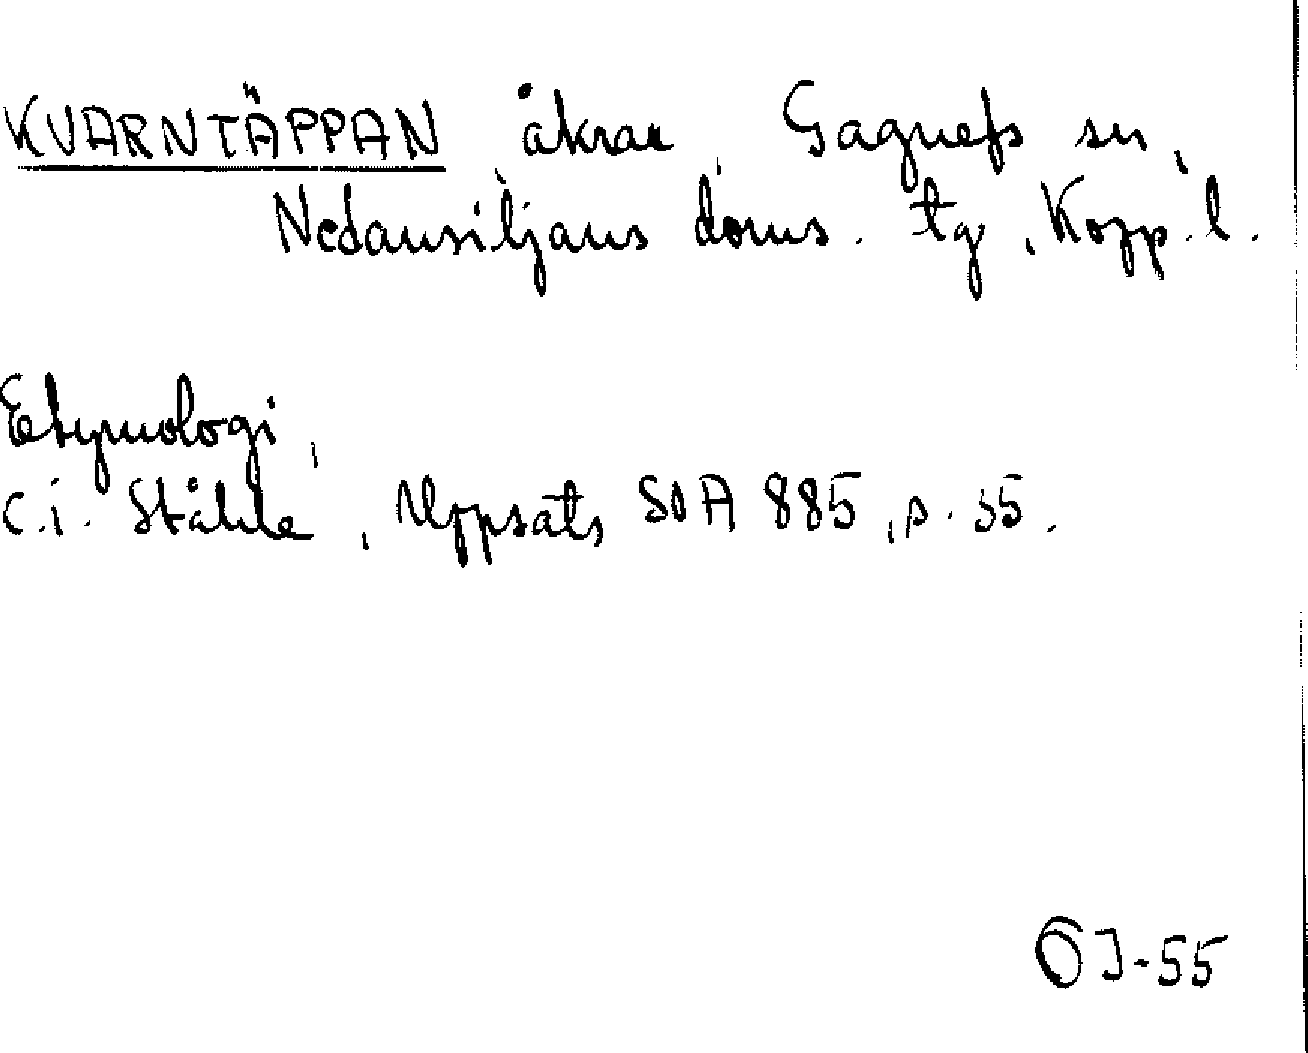 KVARNTÄPPAN, åkrar, Gagnefs sn,
Nedansiljans doms. tg, Kopp. l.
Etymologi,
C.I. Ståhle, Uppsats SOA 885, s. 35.
ÖJ-55